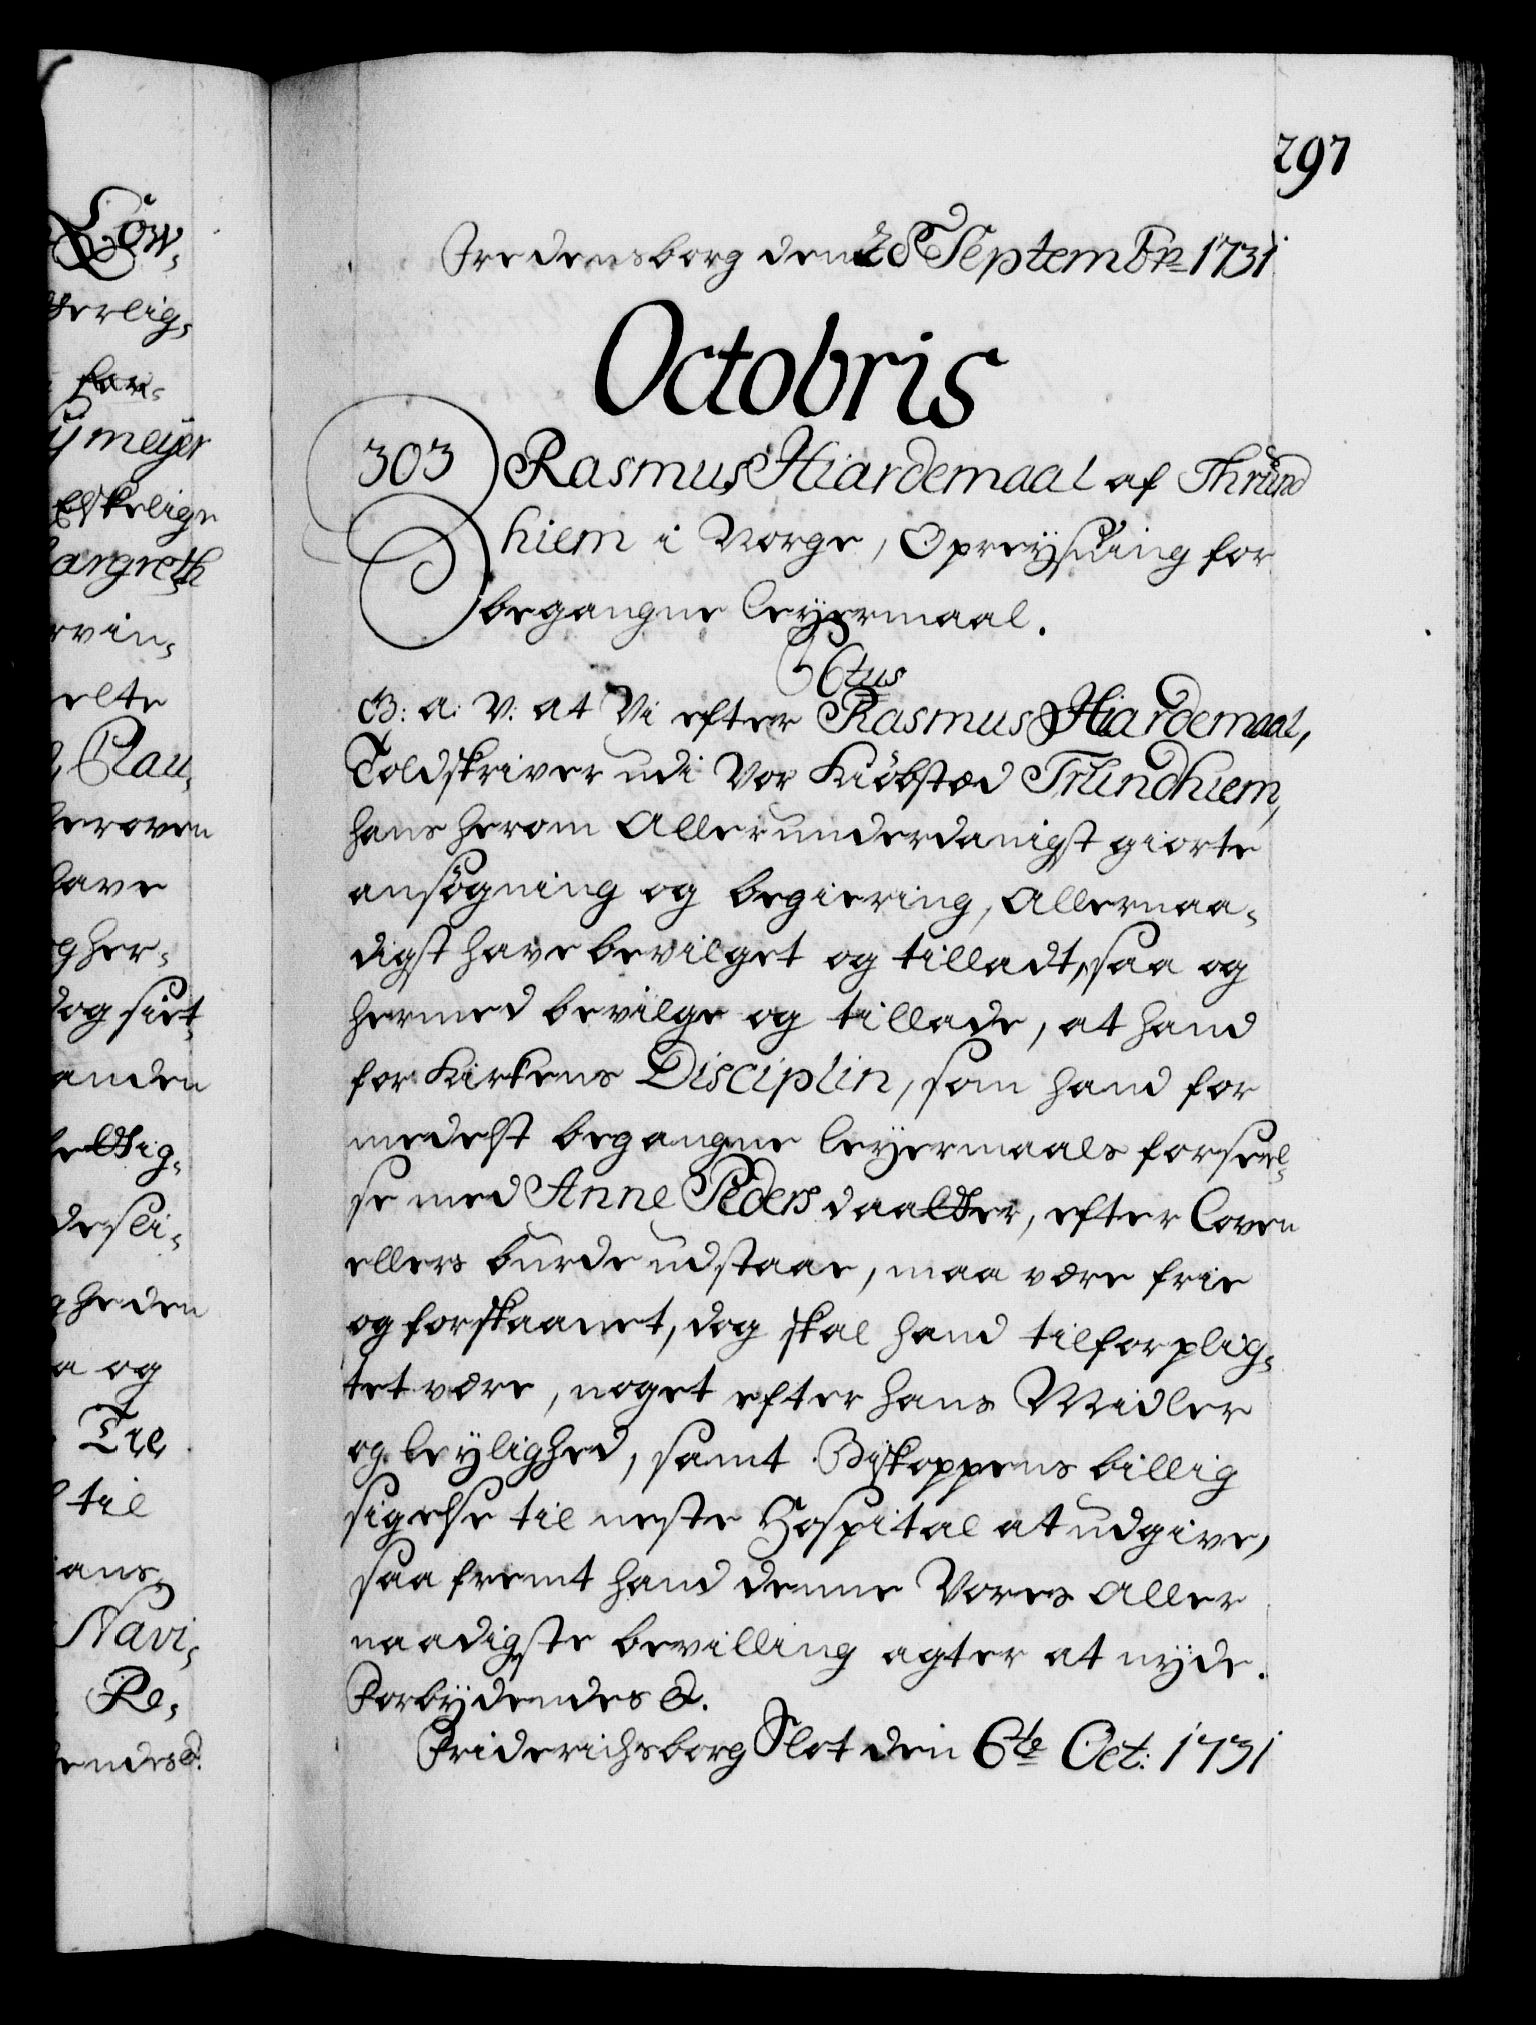 297
Fredensborg den 28 Septembr 1731
Octobris
303 Rasmus Hiardemaal af Thrund
hiem i Norge, Opreysning for
begangne leyermaal.
C6tus
G: a: V: at Vi efter Rasmus Hiardemaal,
Toldskriver udi Vor Kiöbsted Trundhiem,
hans herom Allerunderdanigst giorte
ansögning og begiering, Allernaa-
digst have bevilget og tilladt, saa og
hermed bevilge og tillade, at hand
for Kirkens Disciplin, som hand for
medelst begangne leyermaals forseel-
se med Anne Peders daatter, efter Loven
ellers burde udstaae, maa være frie
og forskaanet, dog skal hand tilforplig-
tet være, noget efter hans Midler
og leylighed, samt Biskoppens billig
sigelse til neste Hospital at udgive,
saa fremt hand denne Vores Aller
naadigste bevilling agter at nyde.
Forbydendes &.
Friderichsborg Slot den 6te Oct: 1731
Löw-
verlig-
for-
ymeyer
Elskelige
argreth
rvin-
elte
Clau-
heroven
have
gher-
dog siet
anden
deri-
gheden
a og
Til
til
ans-
Navi-
Re-
endes &.